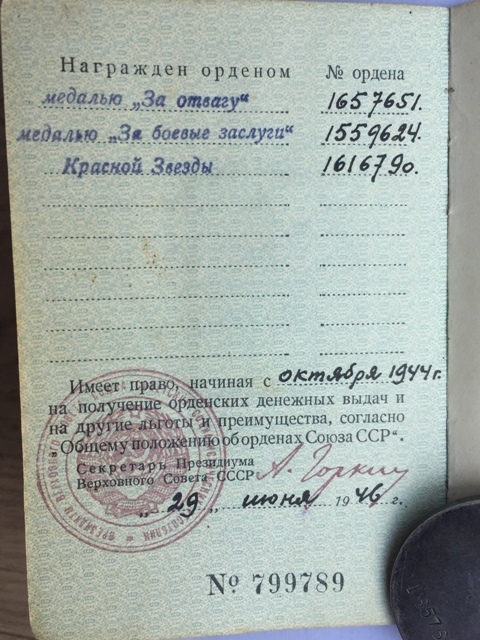 Награжден орденом № ордена
медалью „За отвагу“ 1657651.
медалью „За боевые заслуги“ 1559624.
Красной Звезды 1616790.
Имеет право, начиная с октября 1944 г.
на получение орденских денежных выдач и
на другие льготы и преимущества, согласно
„Общему положению об орденах Союза ССР“.
Секретарь Президиума
Верховного Совета СССР А. Горкин
„29„ июня 1946 г.
№ 799789